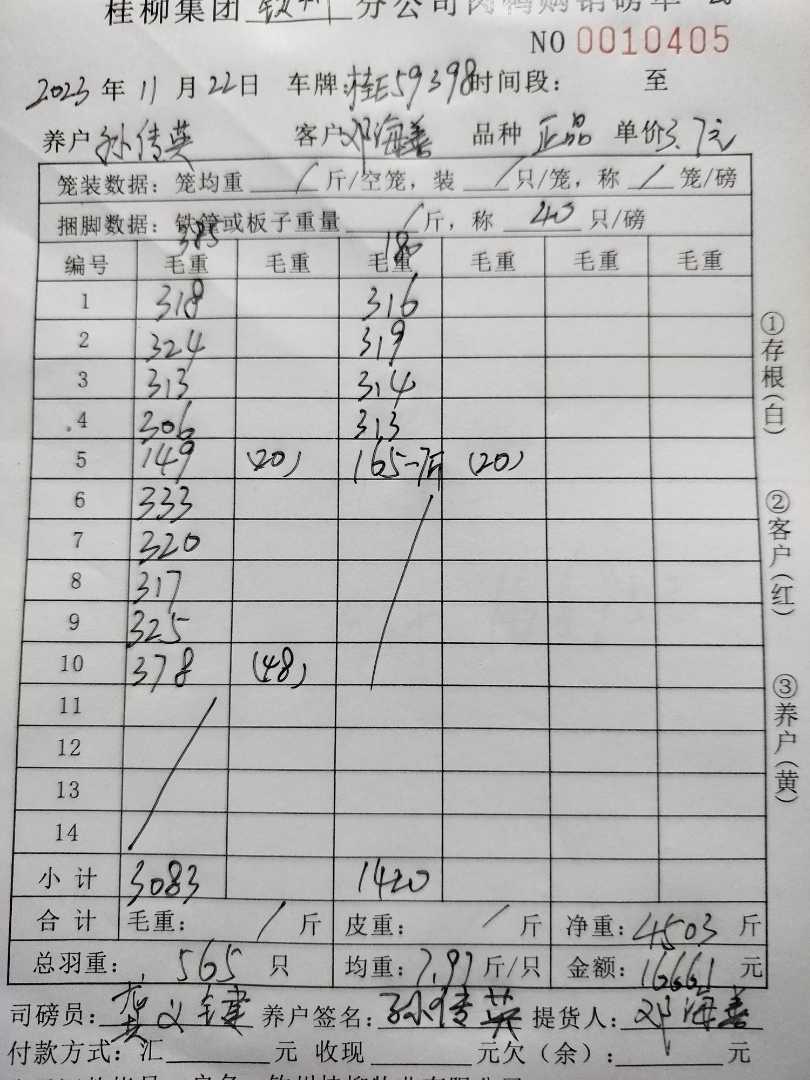 桂柳集团 钦州 分公司肉鸭购销磅单
NO 0010405
2023 年 11 月 22 日 车牌:桂E59398 时间段: 至
养户 孙倩英 客户 邓海善 品种 正品 单价 3.7元
笼装数据: 笼均重 / 斤/空笼, 装 / 只/笼, 称 / 笼/磅
捆脚数据: 铁笼或板子重量 / 斤, 称 40 只/磅
385 180
编号 毛重 毛重 毛重 毛重 毛重 毛重
1 318 316
2 324 319
3 313 314
4 306 313
5 149 (20) 165-7斤 (20)
6 333
7 320
8 317
9 325
10 378 (48)
11
12
13
14
小计 3083 1420
合计 毛重: / 斤 皮重: / 斤 净重: 4503 斤
总羽重: 565 只 均重: 7.97 斤/只 金额: 16661 元
司磅员: 义键 养户签名: 孙倩英 提货人: 邓海善
付款方式: 汇 元 收现 元欠(余): 元
①存根(白)
②客户(红)
③养户(黄)